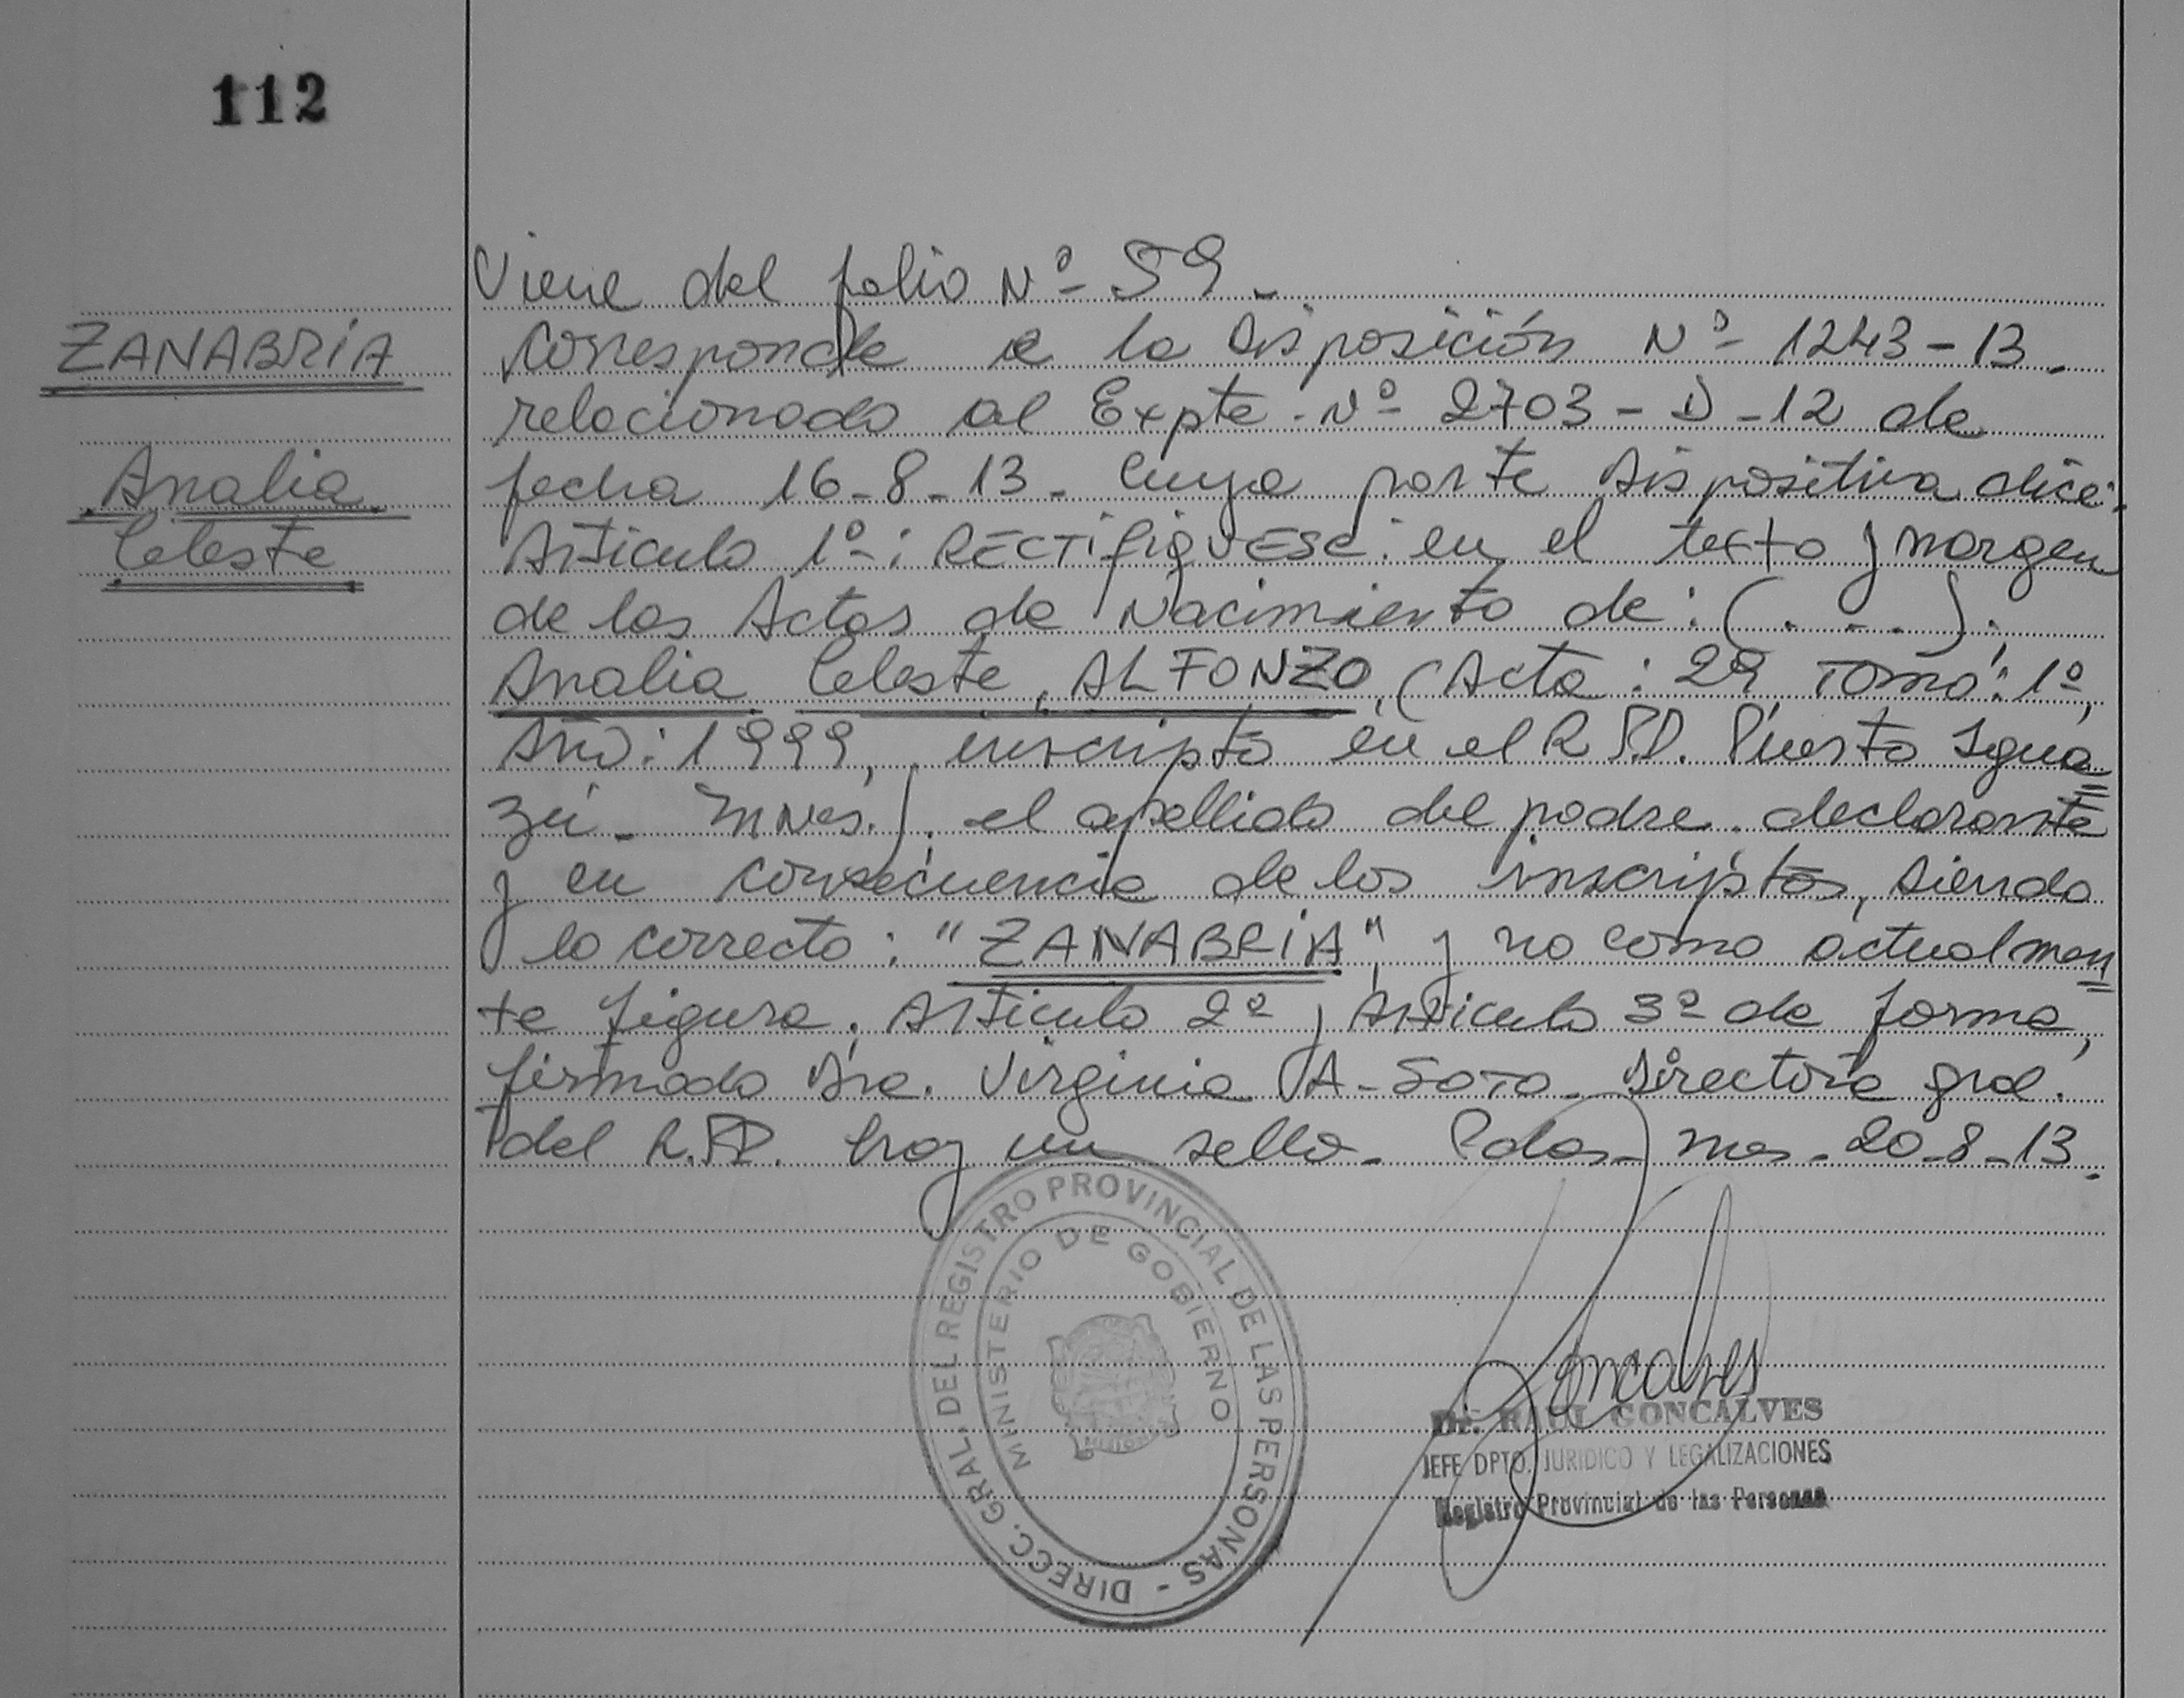 112
ZANABRIA
Analia
Celeste
Viene del folio Nº 59.-
Corresponde a la Disposición Nº 1243-13.
relacionado al Expte. Nº 2703-D-12 de
fecha 16-8-13. Cuya parte Dispositiva dice:
Articulo 1º: RECTIFIQUESE: en el texto y margen
de las Actas de Nacimiento de: (. . .);
Analia Celeste, ALFONZO, (Acta: 29, Tomo: 1º,
Año: 1999, inscripta en el R.P.P. Puerto Igua=
zú - Mnes.), el apellido del padre declarante
y en consecuencia de los inscriptos, siendo
lo correcto: "ZANABRIA", y no como actualmen=
te figura. Articulo 2º y Articulo 3º de forma,
firmado Dra. Virginia A. Soto Directora gral.
del R.P.P. hay un sello. Pdas- Mes. 20-8-13.
DIRECC. GRAL. DEL REGISTRO PROVINCIAL DE LAS PERSONAS -
MINISTERIO DE GOBIERNO
Goncalves
Dr. RAUL GONCALVES
JEFE DPTO. JURIDICO Y LEGALIZACIONES
Registro Provincial de las Personas